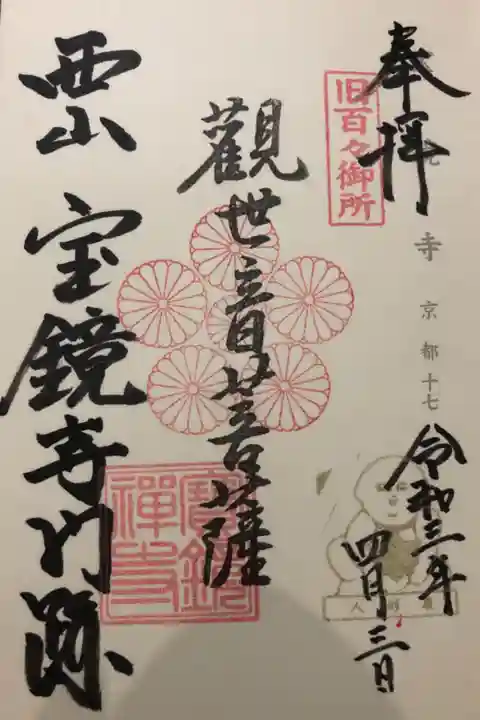 奉拝
旧百々御所
寺 京都十七
令和三年
四月三日
観世音菩薩
寶鏡禅寺
西山 宝鏡寺門跡